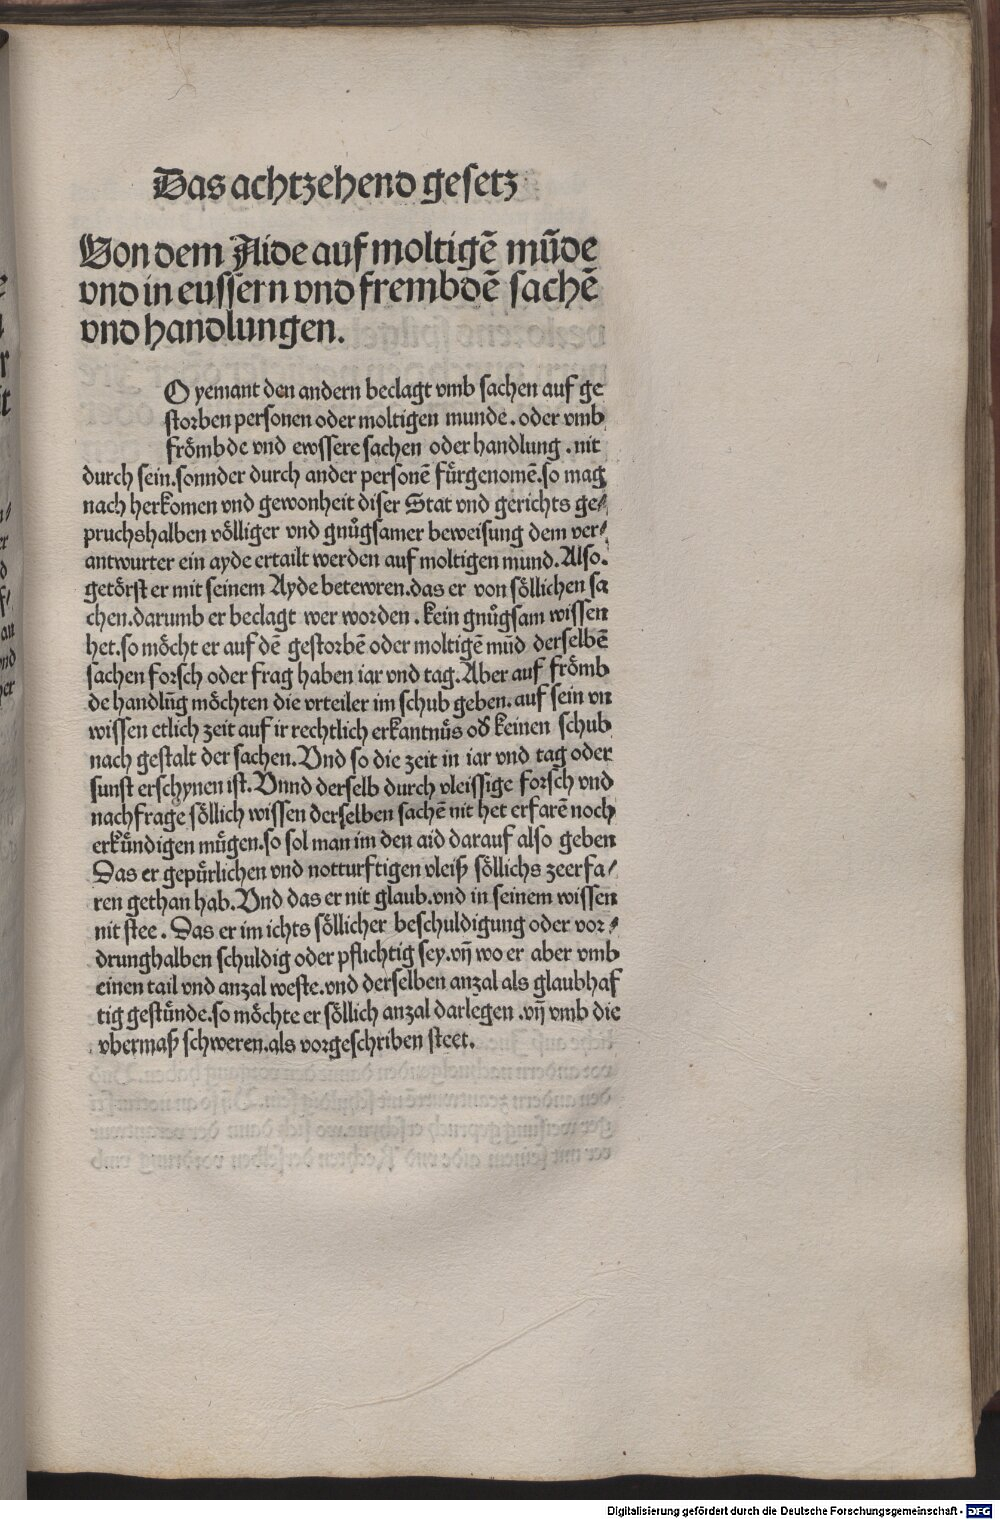 Das achtzehend gesetz
Von dem Aide auf moltigē mūde
vnd in eussern vnd frembdē sachē
vnd handlungen.
O yemant den andern beclagt vmb sachen auf ge
storben personen oder moltigen munde. oder vmb
frömbde vnd ewssere sachen oder handlung. nit
durch sein. sonnder durch ander personē fürgenomē. so mag
nach herkomen vnd gewonheit diser Stat vnd gerichts ge⸗
pruchshalben völliger vnd gnůgsamer beweisung dem ver⸗
antwurter ein ayde ertailt werden auf moltigen mund. Also.
getörst er mit seinem Ayde betewren. das er von söllichen sa
chen. darumb er beclagt wer worden. kein gnůgsam wissen
het. so möcht er auf dē gestorbē oder moltigē mūd derselbē
sachen forsch oder frag haben iar vnd tag. Aber auf frömb
de handlūg möchten die vrteiler im schub geben. auf sein vn
wissen etlich zeit auf ir rechtlich erkantnüs oď keinen schub
nach gestalt der sachen. Vnd so die zeit in iar vnd tag oder
sunst erschynen ist. Vnnd derselb durch vleissige forsch vnd
nachfrage söllich wissen derselben sachē nit het erfarē noch
erkündigen mügen. so sol man im den aid darauf also geben
Das er gepürlichen vnd notturftigen vleiß söllichs zeerfa⸗
ren gethan hab. Vnd das er nit glaub. vnd in seinem wissen
nit stee. Das er im ichts söllicher beschuldigung oder vor⸗
drunghalben schuldig oder pflichtig sey. vn̄ wo er aber vmb
einen tail vnd anzal weste. vnd derselben anzal als glaubhaf
tig gestünde. so möchte er söllich anzal darlegen. vn̄ vmb die
vbermaß schweren. als vorgeschriben steet.
Digitalisierung gefördert durch die Deutsche Forschungsgemeinschaft - DFG